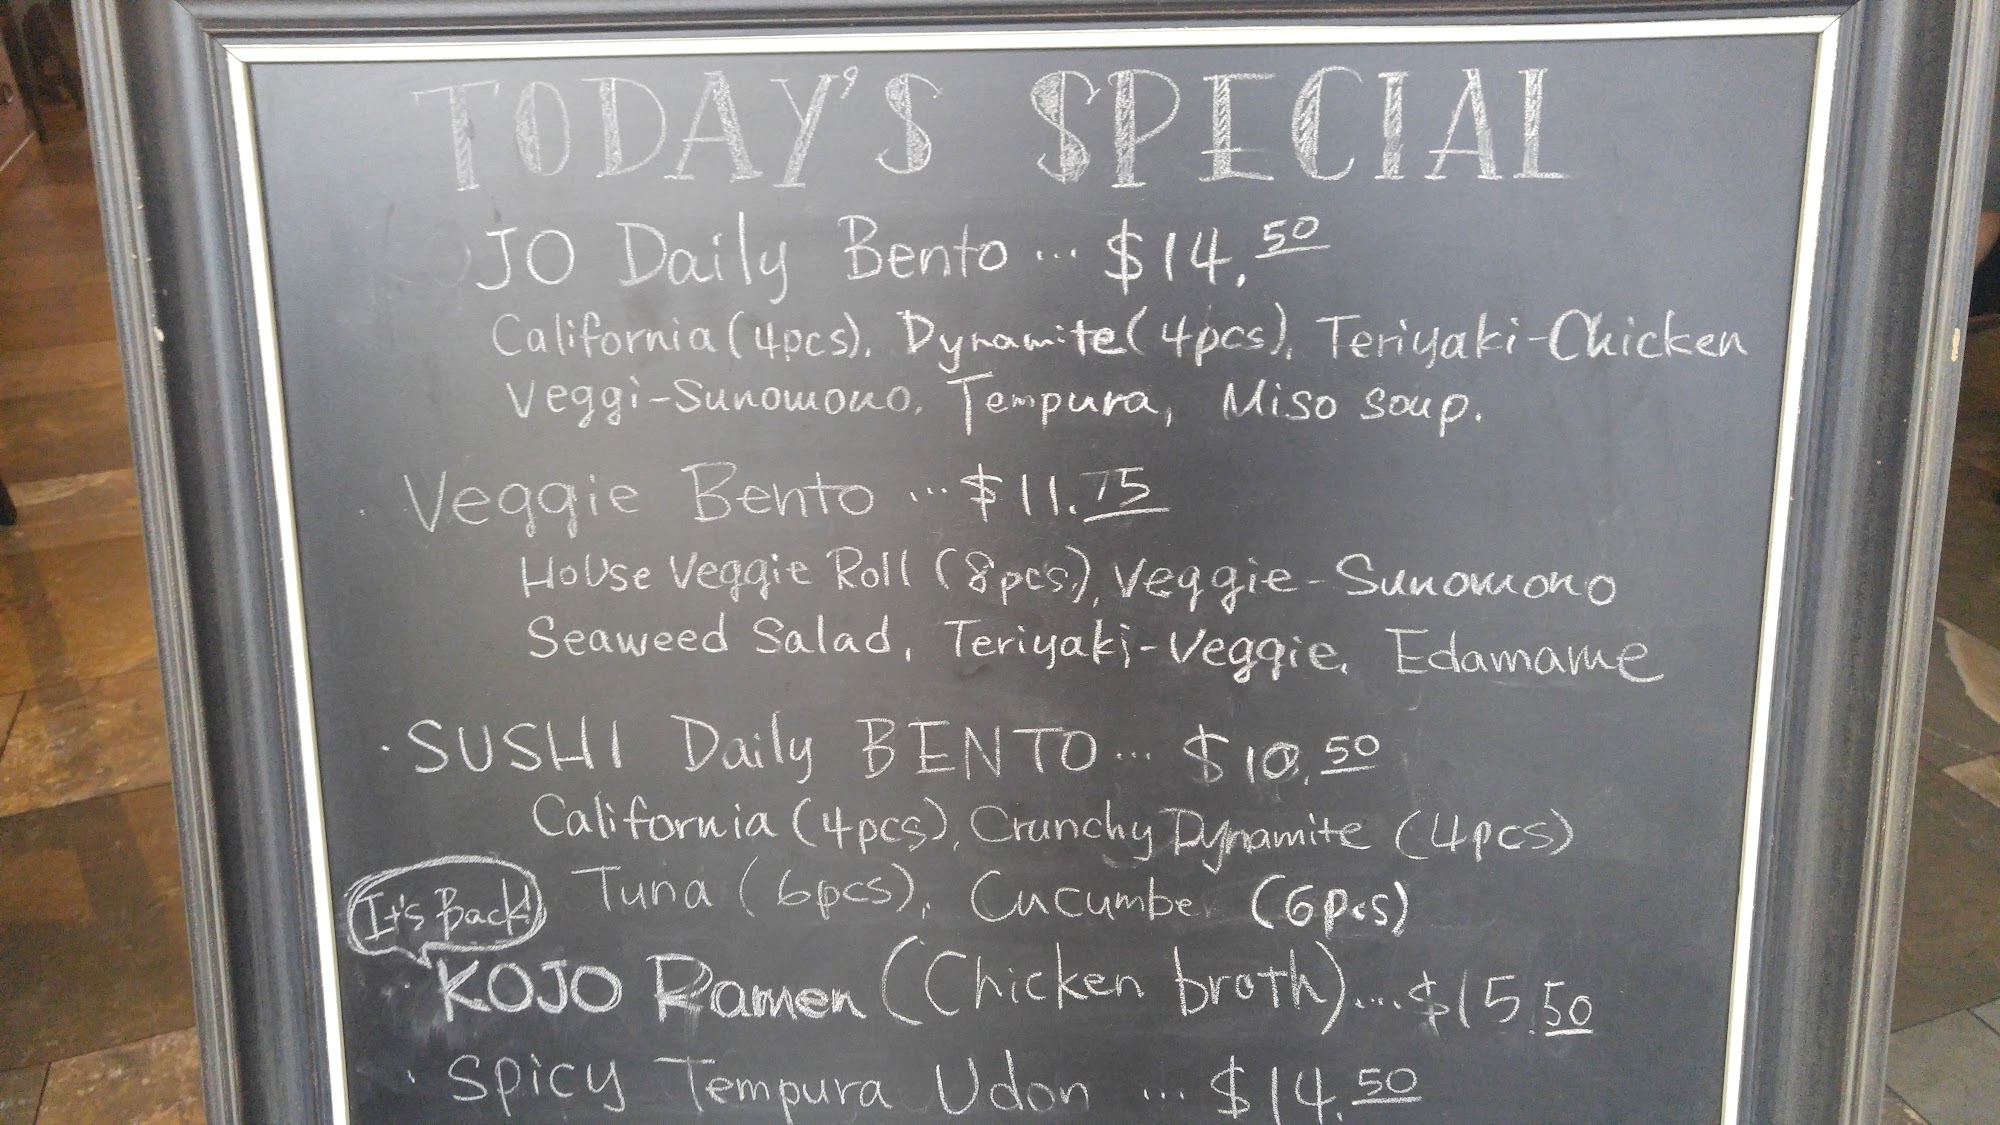 TODAY'S SPECIAL
JO Daily Bento ... $14.50
California (4pcs), Dynamite (4pcs), Teriyaki-Chicken
Veggi-Sunomono, Tempura, Miso soup.
· Veggie Bento ... $11.75
House Veggie Roll (8pcs), Veggie-Sunomono
Seaweed Salad, Teriyaki-Veggie, Edamame
· SUSHI Daily BENTO ... $10.50
California (4pcs), Crunchy Dynamite (4pcs)
Tuna (6pcs), Cucumbe (6pcs)
It's Back!
· KOJO Ramen (Chicken broth) ... $15.50
· Spicy Tempura Udon ... $14.50